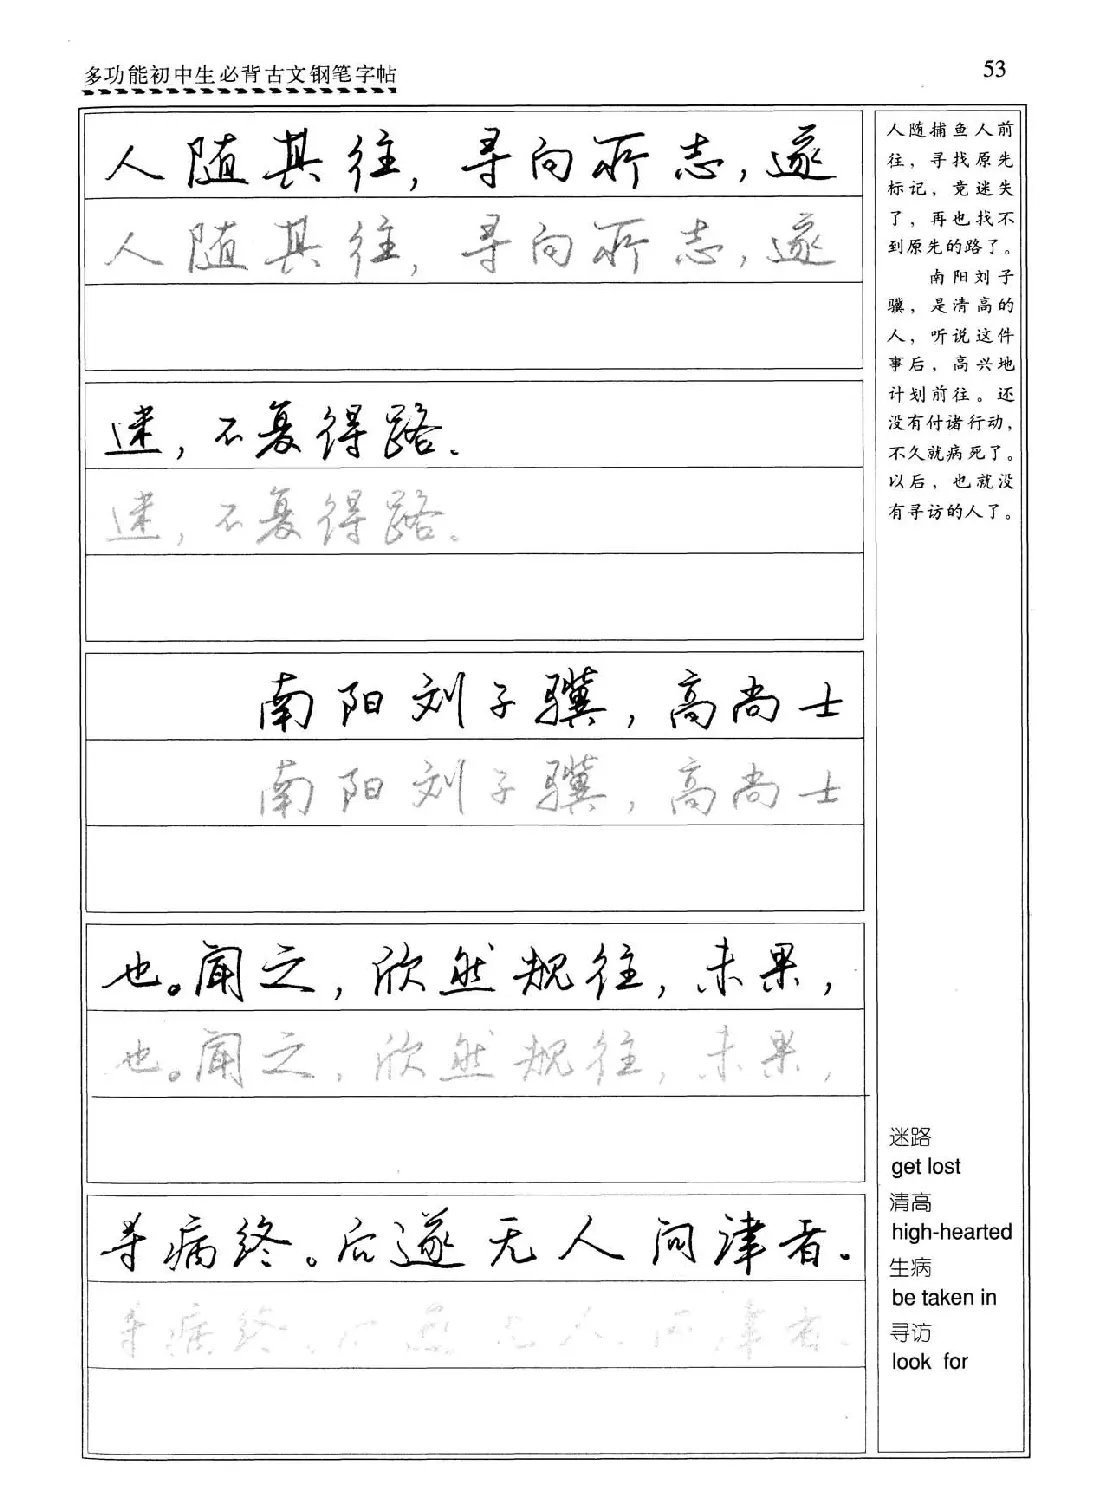 多功能初中生必背古文钢笔字帖
53
人随其往，寻向所志，遂
人随其往，寻向所志，遂
迷，不复得路。
迷，不复得路。
南阳刘子骥，高尚士
南阳刘子骥，高尚士
也。闻之，欣然规往，未果，
也。闻之，欣然规往，未果，
寻病终。后遂无人问津者。
寻病终。后遂无人问津者。
人随捕鱼人前
往，寻找原先
标记，竟迷失
了，再也找不
到原先的路了。
南阳刘子
骥，是清高的
人，听说这件
事后，高兴地
计划前往。还
没有付诸行动，
不久就病死了。
以后，也就没
有寻访的人了。
迷路
get lost
清高
high-hearted
生病
be taken in
寻访
look for